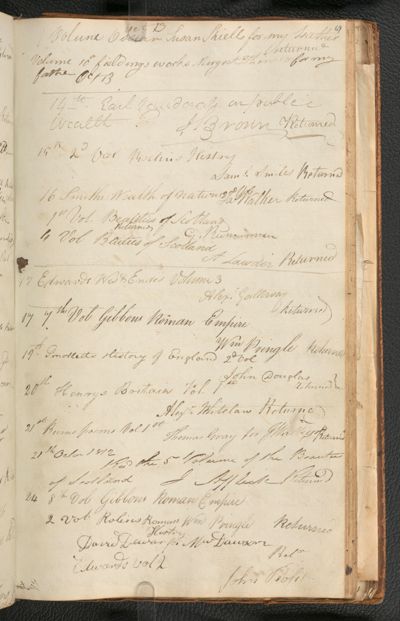 13
9
Volume Susan Skiells for my Mother
Returned
Volume 10 fieldings works August for my
father Oct 13
14th Earl on public
Wealth J. Brown Returned
15th 2d Vol Rollins History
Saml Smiles Returned
16 Smiths Wealth of Nations Mather Returned
1st Vol Beauties of Scotland
Returned
4 Vol Beauties of Scotland
A Lawrie Returned
17 Edwards West Indies Volume 3
Alexr Galloway
17 7th Vol Gibbons Roman Empire Returned
Wm Pringle Returned
19th Smolletts History of England 2d Vol
John Douglas
20th Henrys Britain Vol 1st Returned
Alexr Whitelaw Returned
21st Burns poems Vol 1st
Thomas Gray for Returned
21st Octr 1812
the 5th Volume of the Beauties
of Scotland J Affleck Returned
24 8th Vol Gibbons Roman Empire
2 Vol Rolins Roman Wm Pringle Returned
History
David Dawson for Mr Dawson
Edwards Vol 2 Retn
John